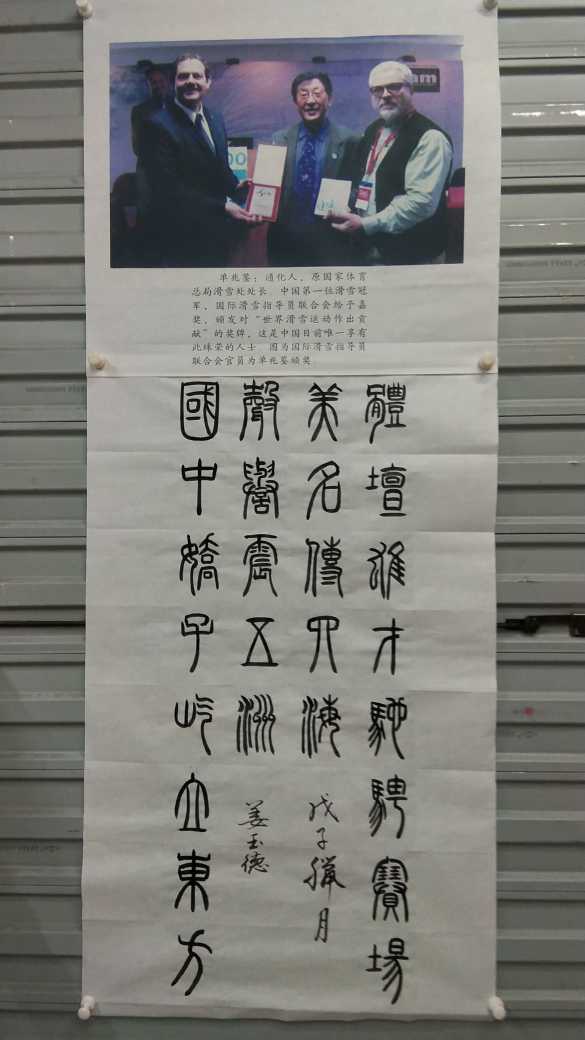 am
单兆鉴：通化人，原国家体育
总局滑雪处处长，中国第一位滑雪冠
军，国际滑雪指导员联合会给予嘉
奖，颁发对“世界滑雪运动作出贡
献”的奖牌，这是中国目前唯一享有
此殊荣的人士，图为国际滑雪指导员
联合会官员为单兆鉴颁奖。
體壇雄才馳騁賽場
美名傳四海
聲譽震五洲
國中嬌子屹立東方
戊子臘月
姜玉德